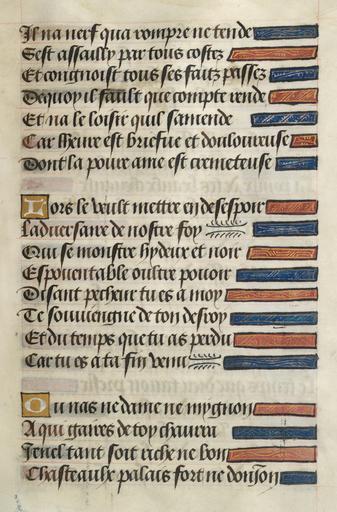 Il na nerf qua rompre ne tende
Sest assailly par tous costez
Et congnoist tous ses faitz passez
Dequoy il fault que compte rende
Et na le loisir quil samende
Car lheure est briefue et douloureuse
Dont la poure ame est cremeteuse
Lors le veult mettre en desespoir
Laduersaire de nostre foy
Qui se monstre hydeux et noir
Espouentable oultre pouoir
Disant pecheur tu es a moy
Te souuiengne de ton desroy
Et du temps que tu as perdu
Car tu es a ta fin venu
Ou nas ne dame ne mygnon
A qui gaires de toy chaura
Jouel tant soit riche ne bon
Chasteaulx palais fort ne donjon